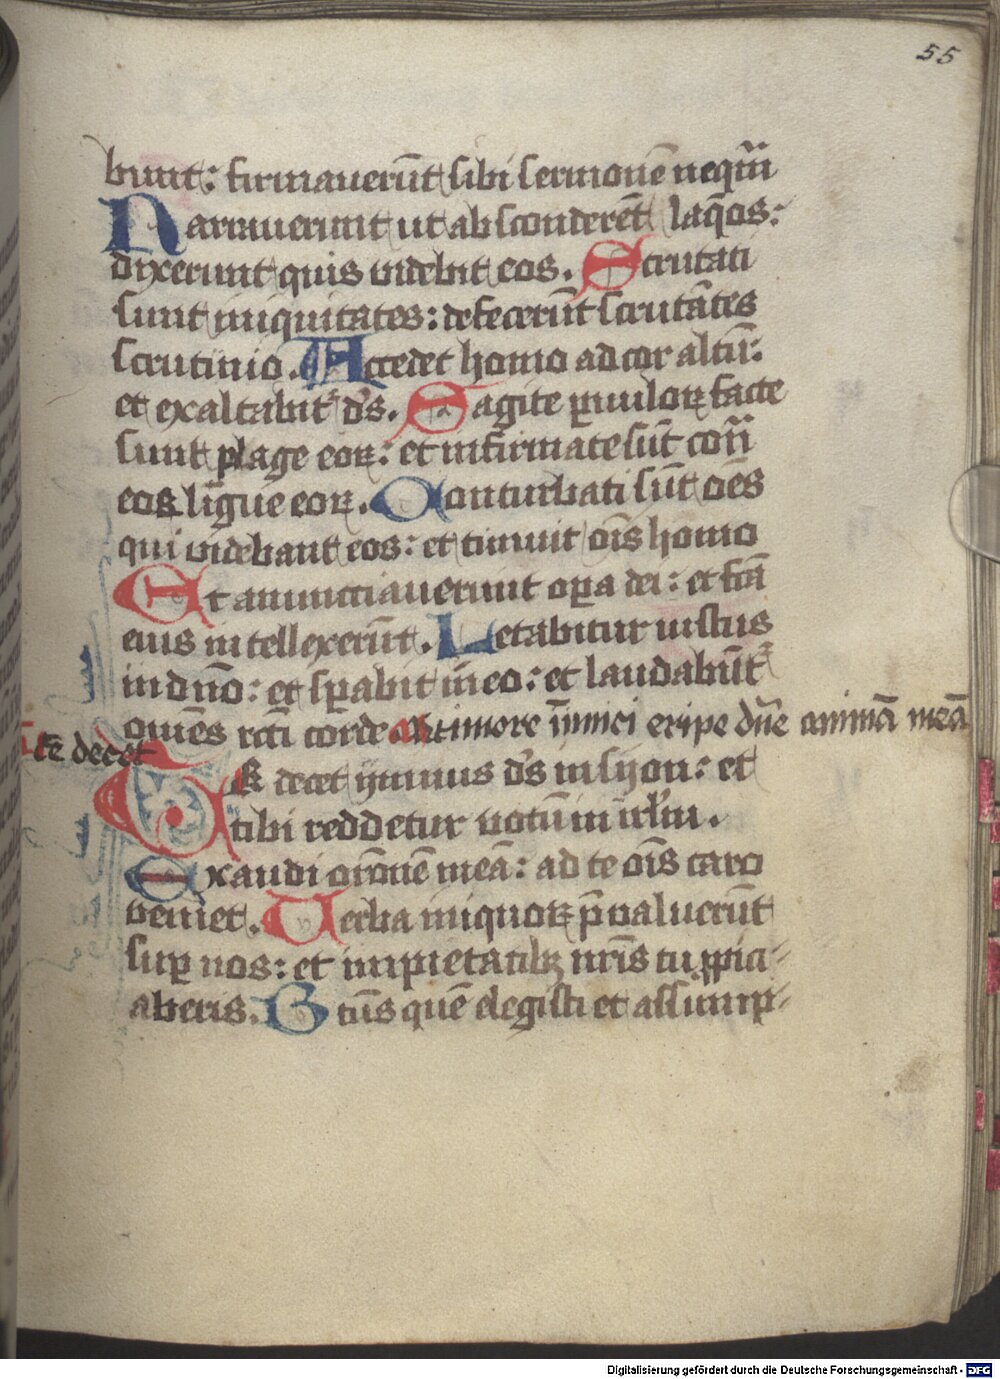 55
bunt: firmauerūt sibi sermonē neqm̄
Narrauerunt ut absconderēt laq̄os:
dixerunt quis videbit eos. Scrutati
sunt iniquitates: defecerūt scrutātes
scrutinio. Accedet homo ad cor altū:
et exaltabit᷑ ds̄. Sagite ꝑuuloꝝ facte
sunt plage eoꝝ: et infirmate sūt cont̄
eos līgue eoꝝ. Conturbati sūt oēs
qui videbant eos: et timuit oīs homo
Et annuncciauerunt oꝑa dei: et fcā
eius intellexerūt. Letabitur iustus
in dn̄o: et sꝑabit in eo: et laudabūt᷑
omēs rc̄ti corde A timore inimici eripe dn̄e animā meā
Te decet
Te decet ymnus ds̄ in syon: et
tibi reddetur votū in irl̄m.
Exaudi or̄onē meā: ad te oīs caro
veniet. Verba iniquoꝝ p̄ualuerūt
suꝑ nos: et impietatibꝫ nr̄is tu ꝓpici-
aberis. Btūs quē elegisti et assump-
Digitalisierung gefördert durch die Deutsche Forschungsgemeinschaft - DFG